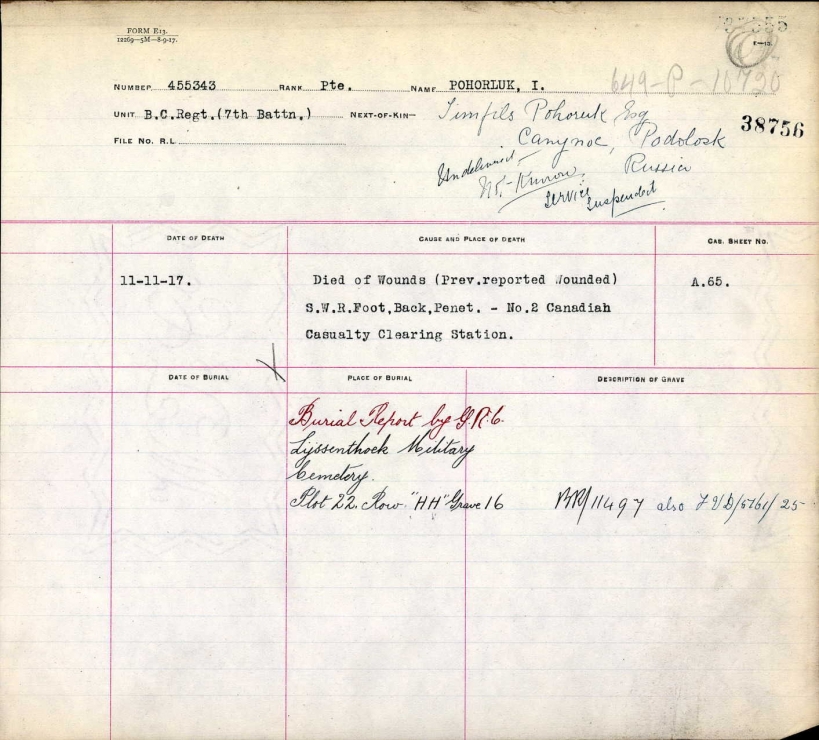 FORM E13.
12269—5M—8-9-17.
649-P-10720
NUMBER 455343 RANK Pte. NAME POHORLUK, I.
UNIT B.C.Regt.(7th Battn.) NEXT-OF-KIN— Timfils Pohoruk Esq
38756
FILE No. R.L.
Canynoe, Podolosk
Russia
Undelivered,
Not Known.
Service Suspended
DATE OF DEATH CAUSE AND PLACE OF DEATH CAS. SHEET NO.
11-11-17. Died of Wounds (Prev.reported Wounded) A.65.
S.W.R.Foot,Back,Penet. - No.2 Canadian
Casualty Clearing Station.
DATE OF BURIAL PLACE OF BURIAL DESCRIPTION OF GRAVE
Burial Report by G.R.C.
Lijssenthoek Military
Cemetery.
Plot 22. Row "HH" Grave 16 BR/11497 also